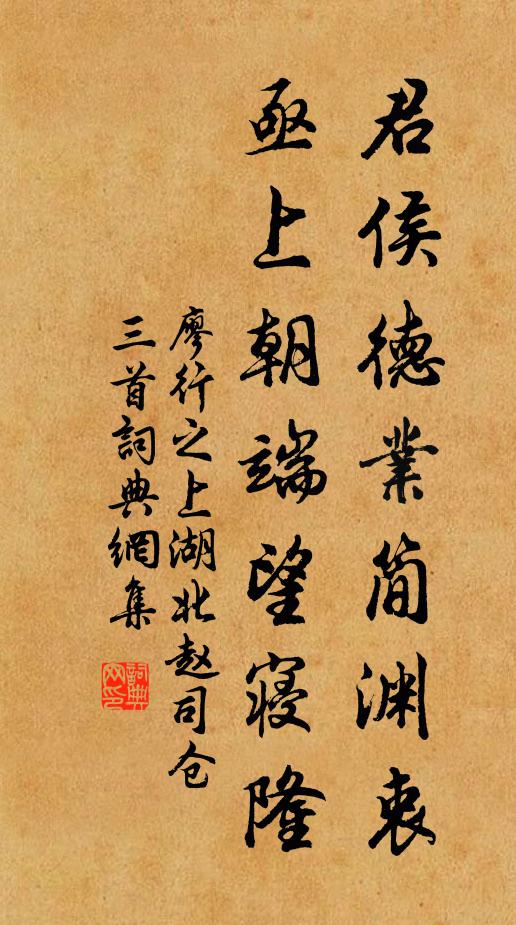 君侯德業简渊衷
亟上朝端望寝隆
廖行之上湖北赵司仓
三首詞典網集
詞典网印